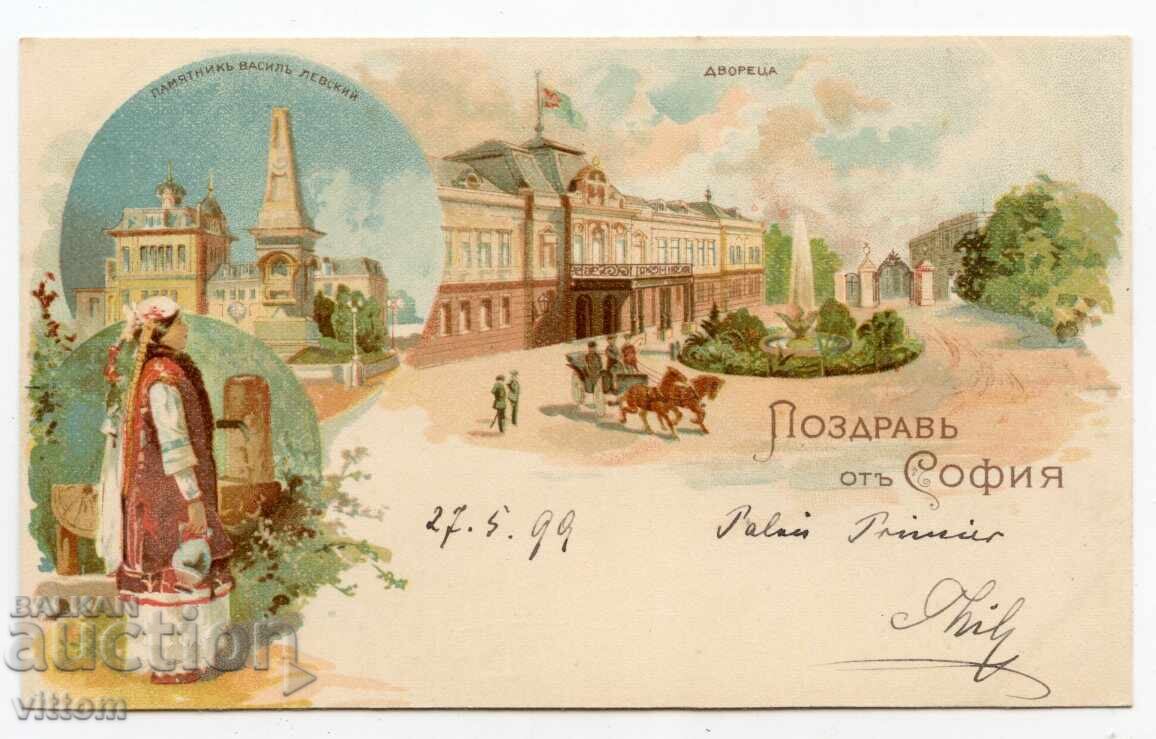 ПАМЯТНИКЪ ВАСИЛЪ ЛЕВСКИЙ
ДВОРЕЦА
ПОЗДРАВЬ
ОТЪ СОФИЯ
27.5.99 Palais Princier
BALKAN
auction
vittom